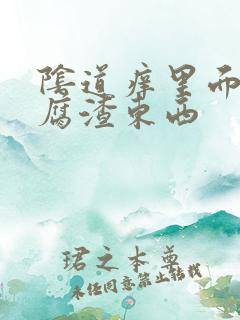 陰道痒里而
腐渣东西
珺之本尊
未经同意禁止转载